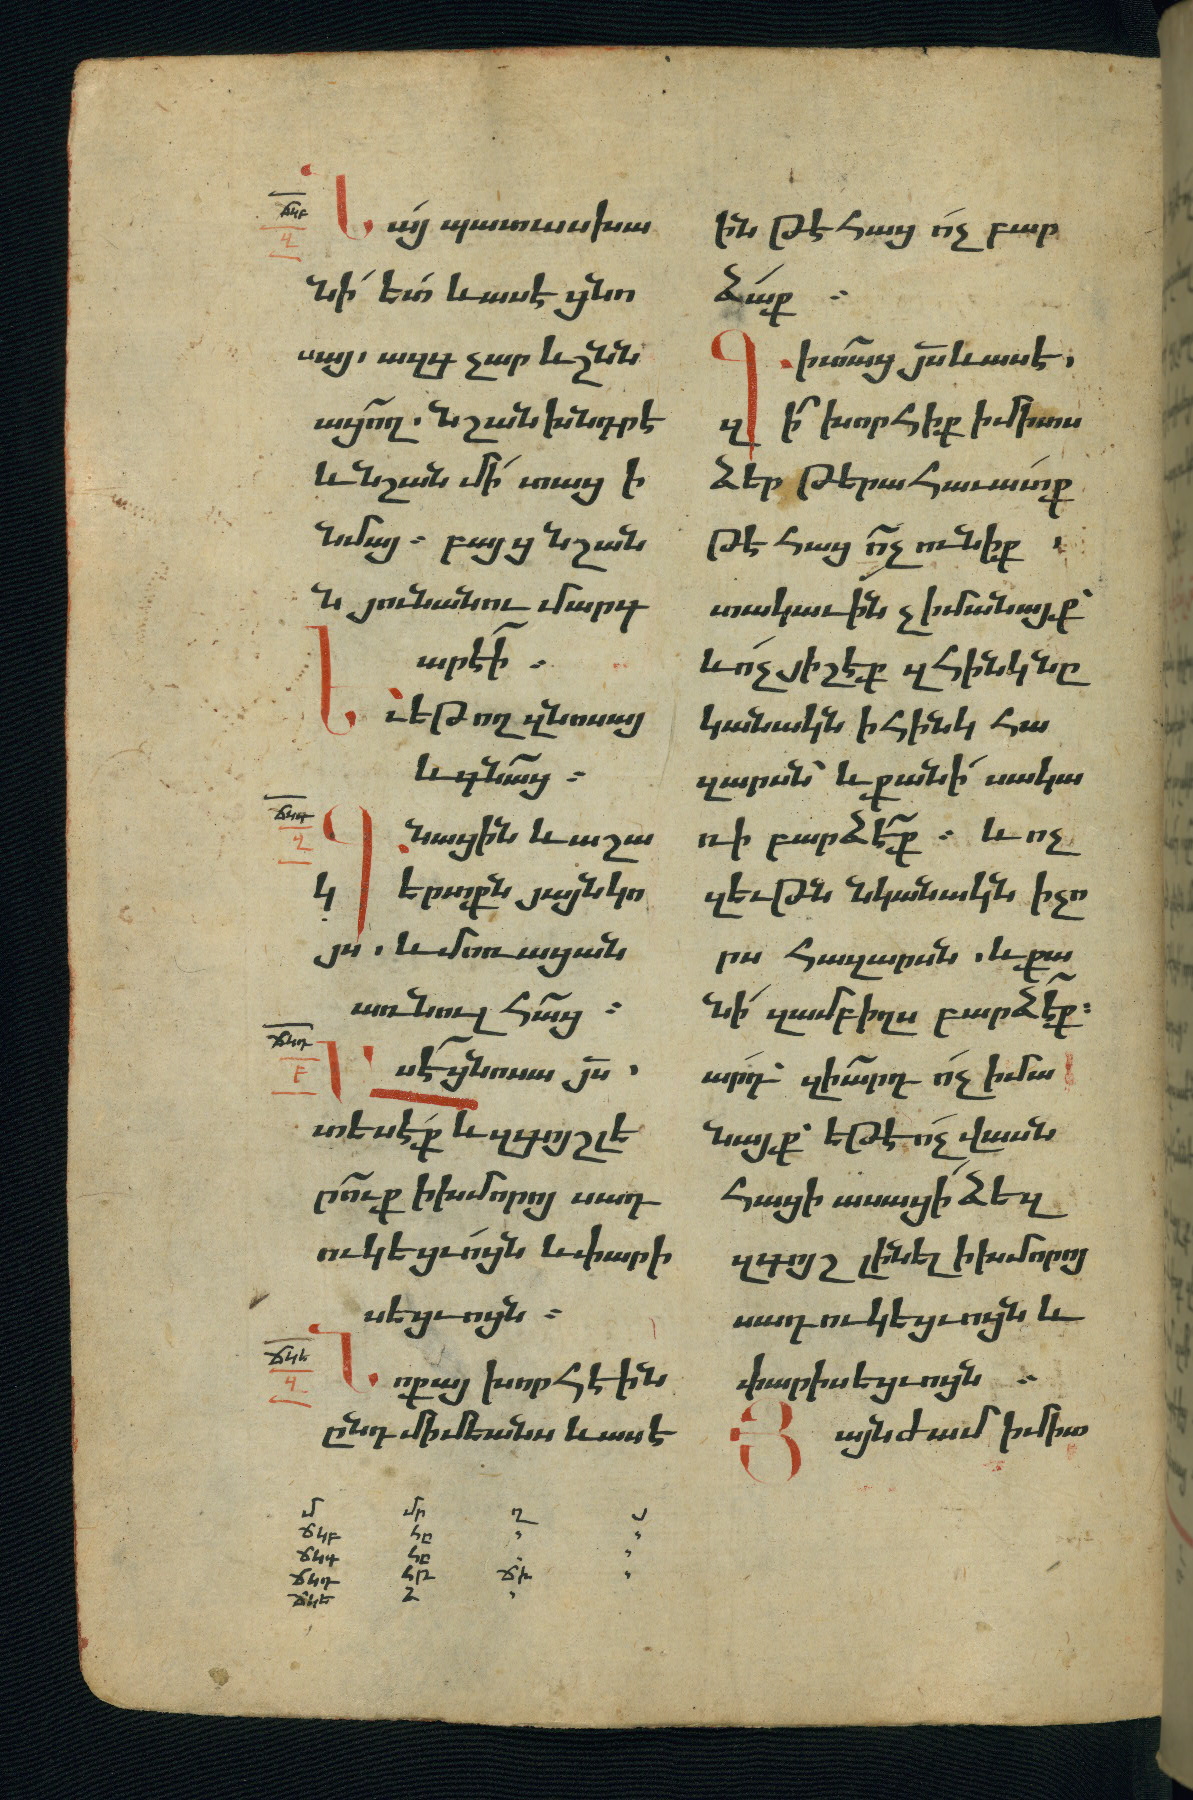 ճկբ
Նայ պատասխա
նի ետ և ասէ ցնո
սայ. ազգ չար և շնն
ացող. նշան խնդրէ
և նշան մի տացի
նմայ։ բայց նշան
ն յունանու մարգ
արէի։
Եւ եթող զնոսայ
և գնաց։
ճկգ
Գնացին և աշա
կերտքն յայնկո
յս. և մոռացան
առնուլ հաց։
ճկդ
Ասէ ցնոսա յս.
տեսէք և զգոյշ լե
րուք ի խմորոյ սադ
ուկեցւոյն և փարի
սեցւոյն։
ճկե
Նոքայ խորհէին
ընդ միմեանս և ասէ
ին թէ հաց ոչ բար
ձաք։
Գիտաց յս և ասէ,
զի խորհիք ի միտս
ձեր թերահաւատք
թէ հաց ոչ ունիք,
տակաւին չիմանայք՝
և ոչ յիշէք զհինկ նը
կանակն ի հինկ հա
զարսն և քանի սակա
ռի բարձէք։ և ոչ
զեւթն նկանակն ի չո
րս հազարսն. և քա
նի զամբիղս բարձէք։
արդ՝ զիարդ ոչ իմա
նայք՝ եթէ ոչ վասն
հացի ասացի ձեզ
զգոյշ լինել ի խմորոյ
սադուկեցւոյն և
փարիսեցւոյն։
Յայնժամ ի միտ
մ մր ղ յ
ճկբ հը
ճկգ հը
ճկդ ճխ
ճկե